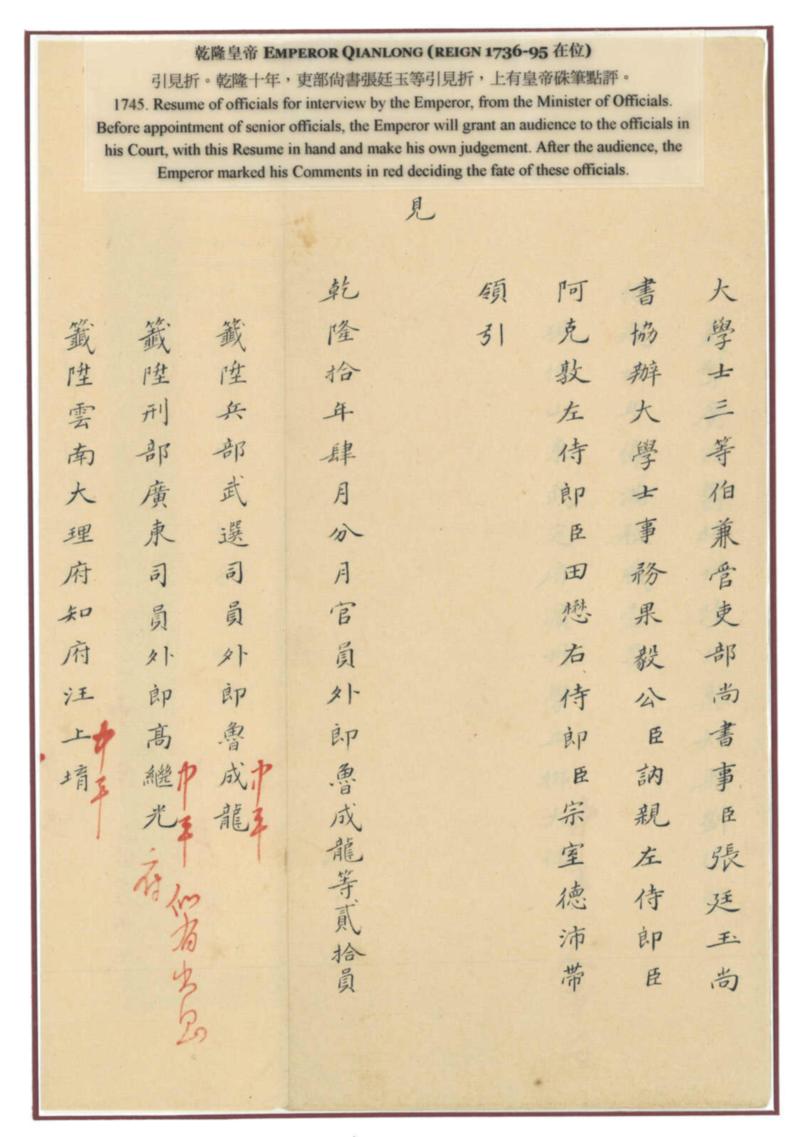 乾隆皇帝 EMPEROR QIANLONG (REIGN 1736-95 在位)
引見折。乾隆十年，吏部尚書張廷玉等引見折，上有皇帝硃筆點評。
1745. Resume of officials for interview by the Emperor, from the Minister of Officials.
Before appointment of senior officials, the Emperor will grant an audience to the officials in
his Court, with this Resume in hand and make his own judgement. After the audience, the
Emperor marked his Comments in red deciding the fate of these officials.
大學士三等伯兼管吏部尚書事臣張廷玉尚
書協辦大學士事務果毅公臣訥親左侍郎臣
阿克敦左侍郎臣田懋右侍郎臣宗室德沛帶
領引
見
乾隆拾年肆月分月官員外郎魯成龍等貳拾員
籤陞兵部武選司員外郎魯成龍
中平
籤陞刑部廣東司員外郎高繼光
中平似有出息
府
籤陞雲南大理府知府汪上堉
中平